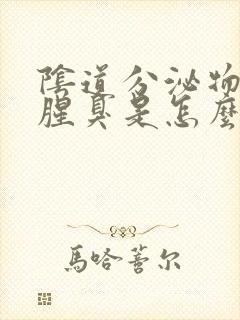 陰道分泌物
腥臭是怎麼
馬哈蓍尔